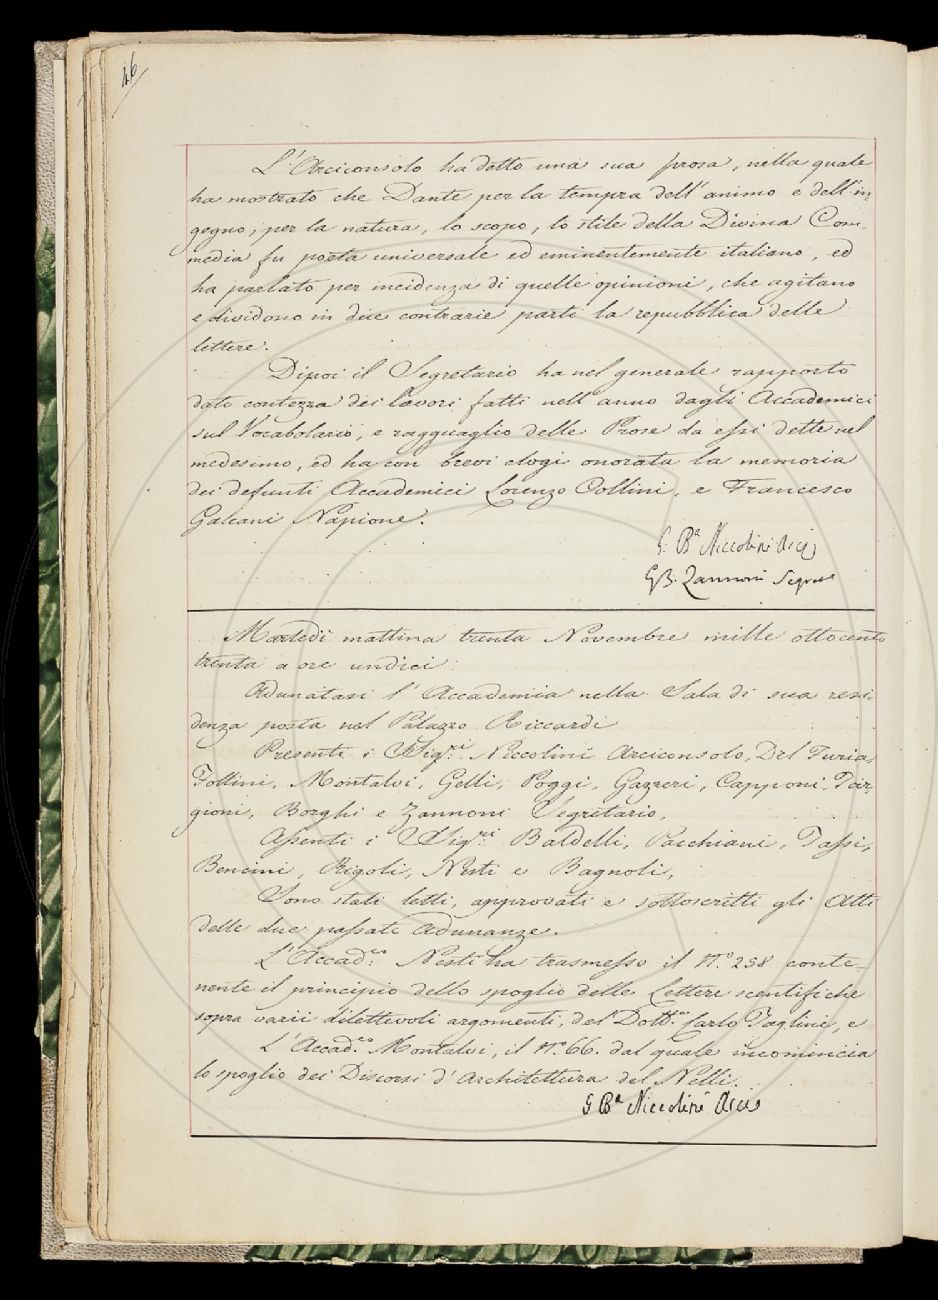 46
L'Arciconsolo ha detto una sua prosa, nella quale
ha mostrato che Dante per la tempra dell'animo e dell'in-
gegno, per la natura, lo scopo, lo stile della Divina Com-
media fu poeta universale ed eminentemente italiano, ed
ha parlato per incidenza di quelle opinioni, che agitano
e dividono in due contrarie parti la repubblica delle
lettere.
Dipoi il Segretario ha nel generale rapporto
dato contezza dei lavori fatti nell'anno dagli Accademici
sul Vocabolario, e ragguaglio delle Prose da essi dette nel
medesimo, ed ha con brevi elogi onorata la memoria
dei defunti Accademici Lorenzo Collini, e Francesco
Galeani Napione.
G. Ba Niccolini Arcio
GB. Zannoni Segreto
Martedì mattina trenta Novembre mille ottocento
trenta a ore undici.
Adunatasi l'Accademia nella Sala di sua resi-
denza posta nel Palazzo Riccardi
Presenti i Sigri. Niccolini Arciconsolo, Del Furia,
Follini, Montalvi, Gelli, Poggi, Gazzeri, Capponi, Tar-
gioni, Borghi e Zannoni Segretario,
Assenti i Sigri. Baldelli, Pacchiani, Tassi,
Bencini, Rigoli, Nesti e Bagnoli,
Sono stati letti, approvati e sottoscritti gli Atti
delle due passate Adunanze.
L'Accadco. Nesti ha trasmesso il No. 258 conte-
nente il principio dello spoglio delle Lettere scentifiche
sopra varii dilettevoli argomenti, del Dotto. Carlo Taglini, e
L'Accadco. Montalvi, il No. 66. dal quale incomincia
lo spoglio dei Discorsi d'Architettura del Nelli.
G Ba Niccolini Arco